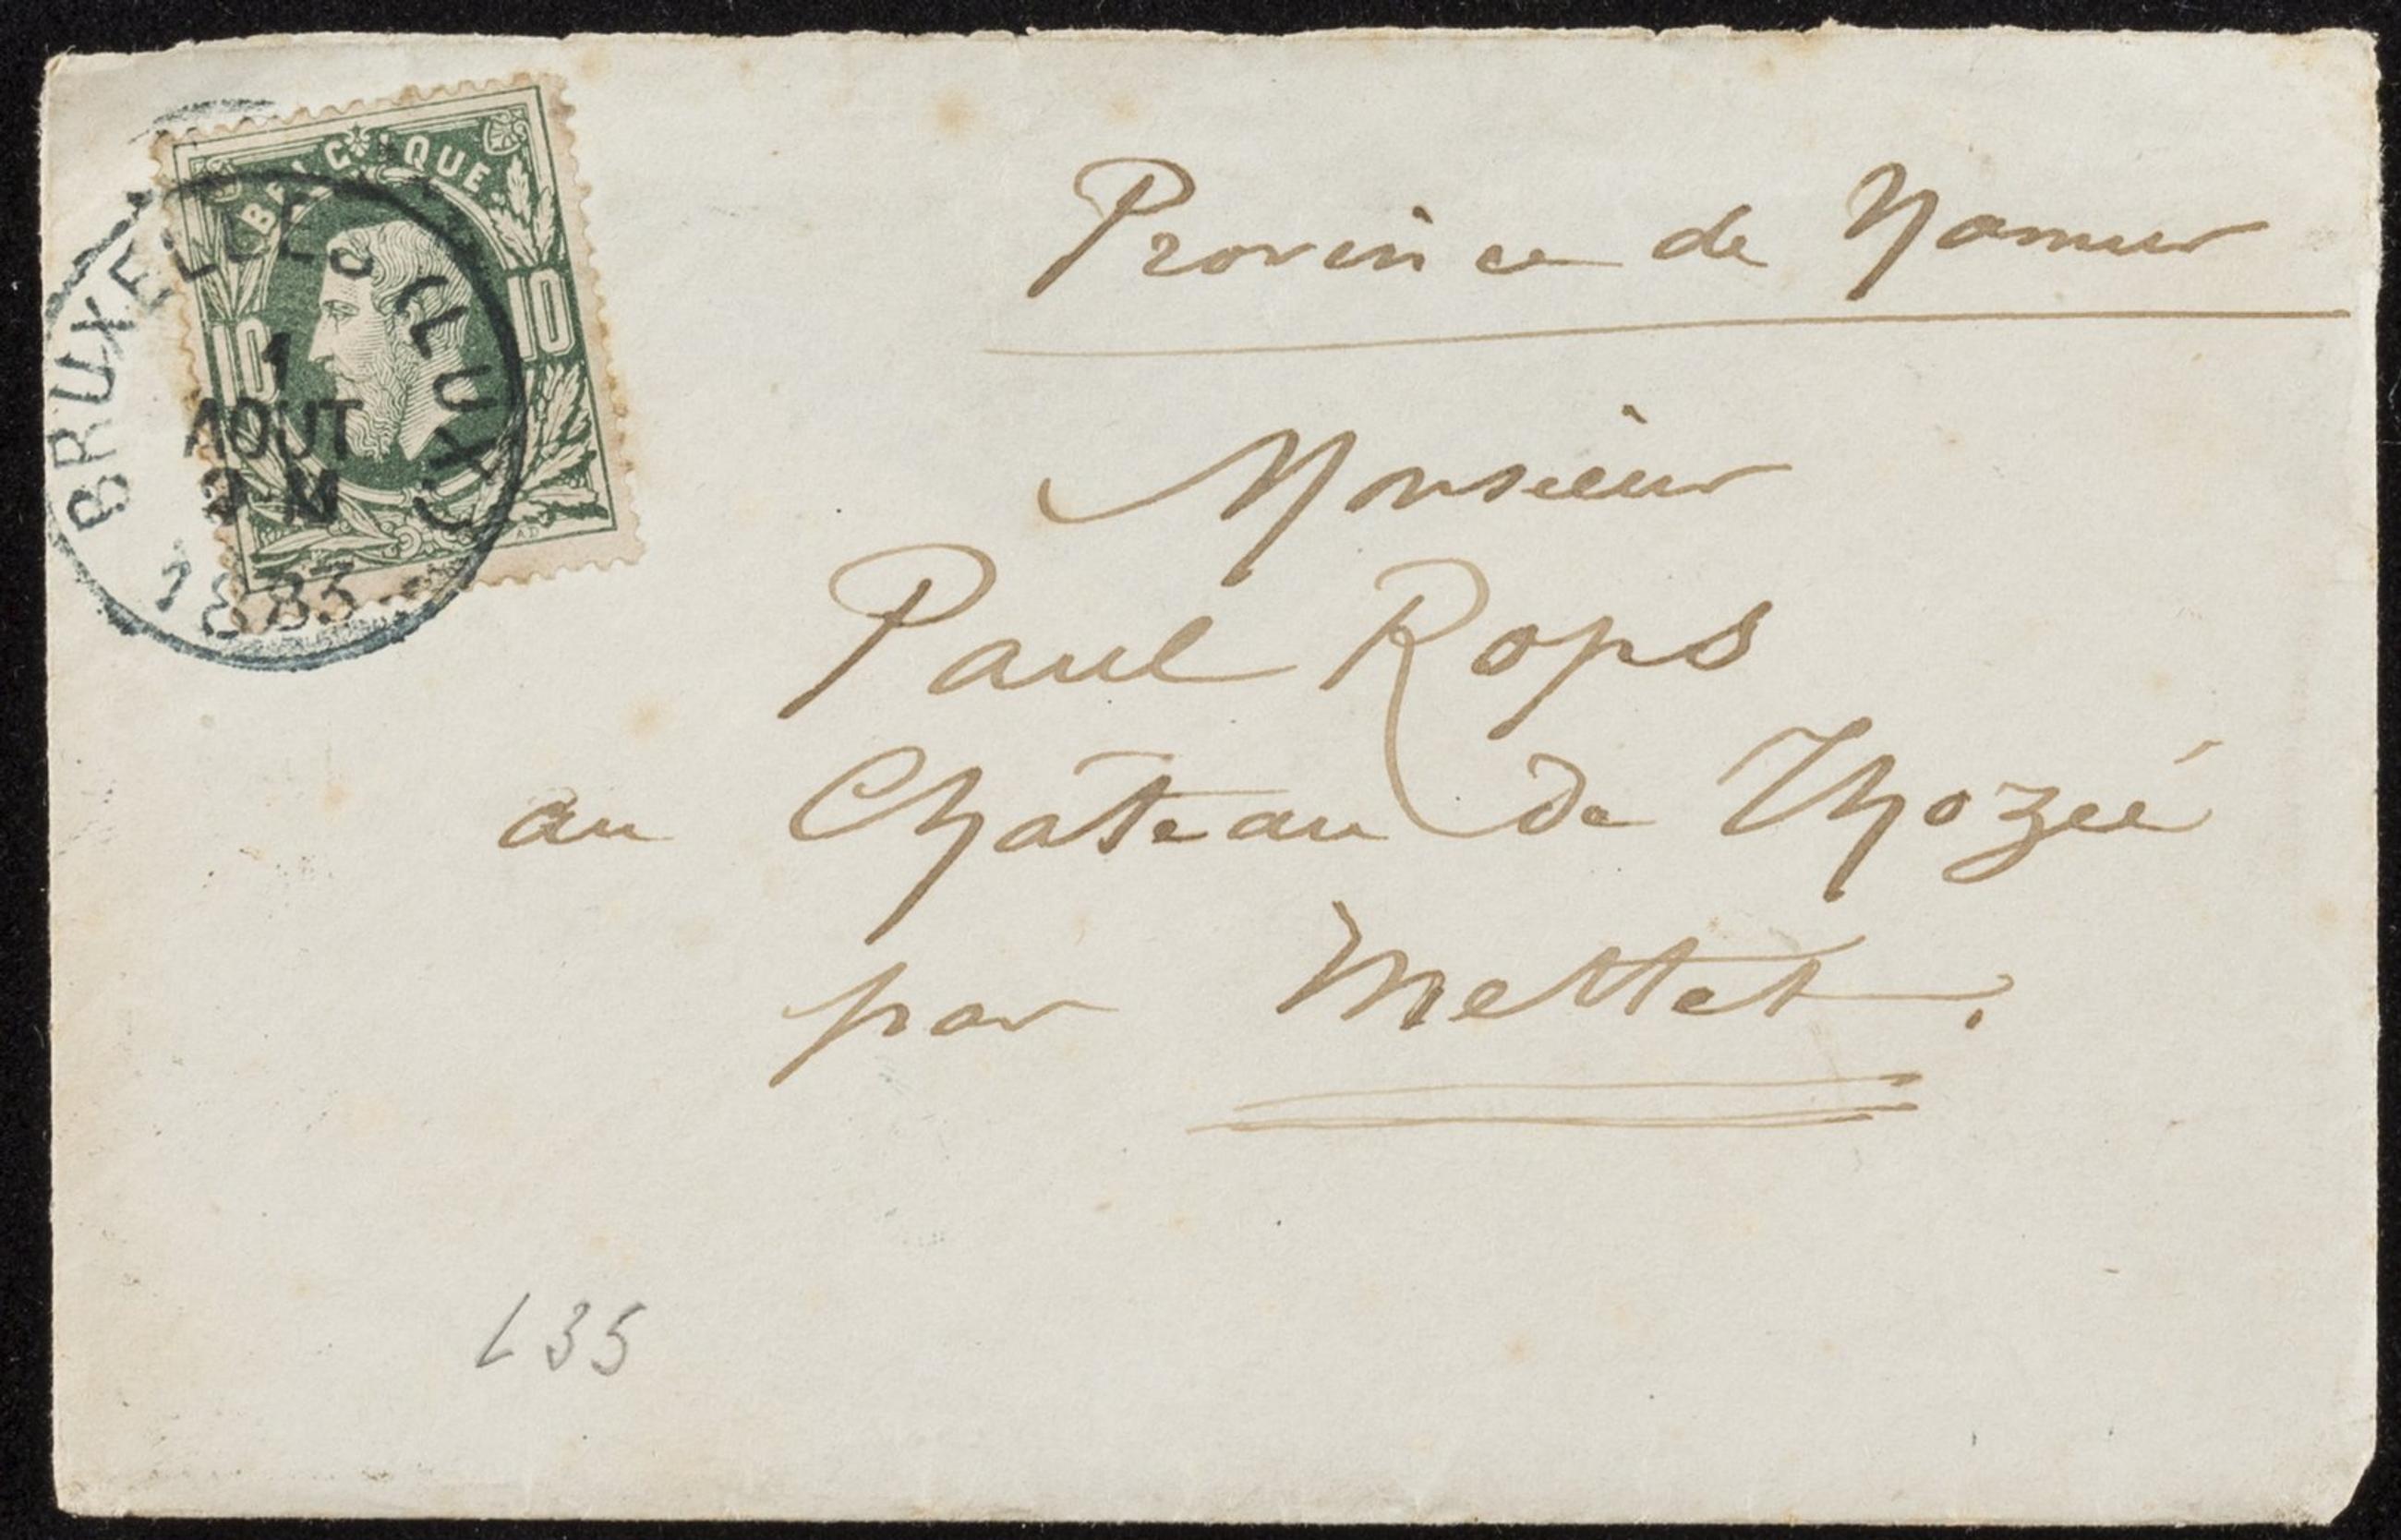 BELGIQUE
10 10
BRUXELLES (LUX)
1
AOUT
9-M
1883
Province de Namur
Monsieur
Paul Rops
au Château de Thozée
par Mettet.
L35